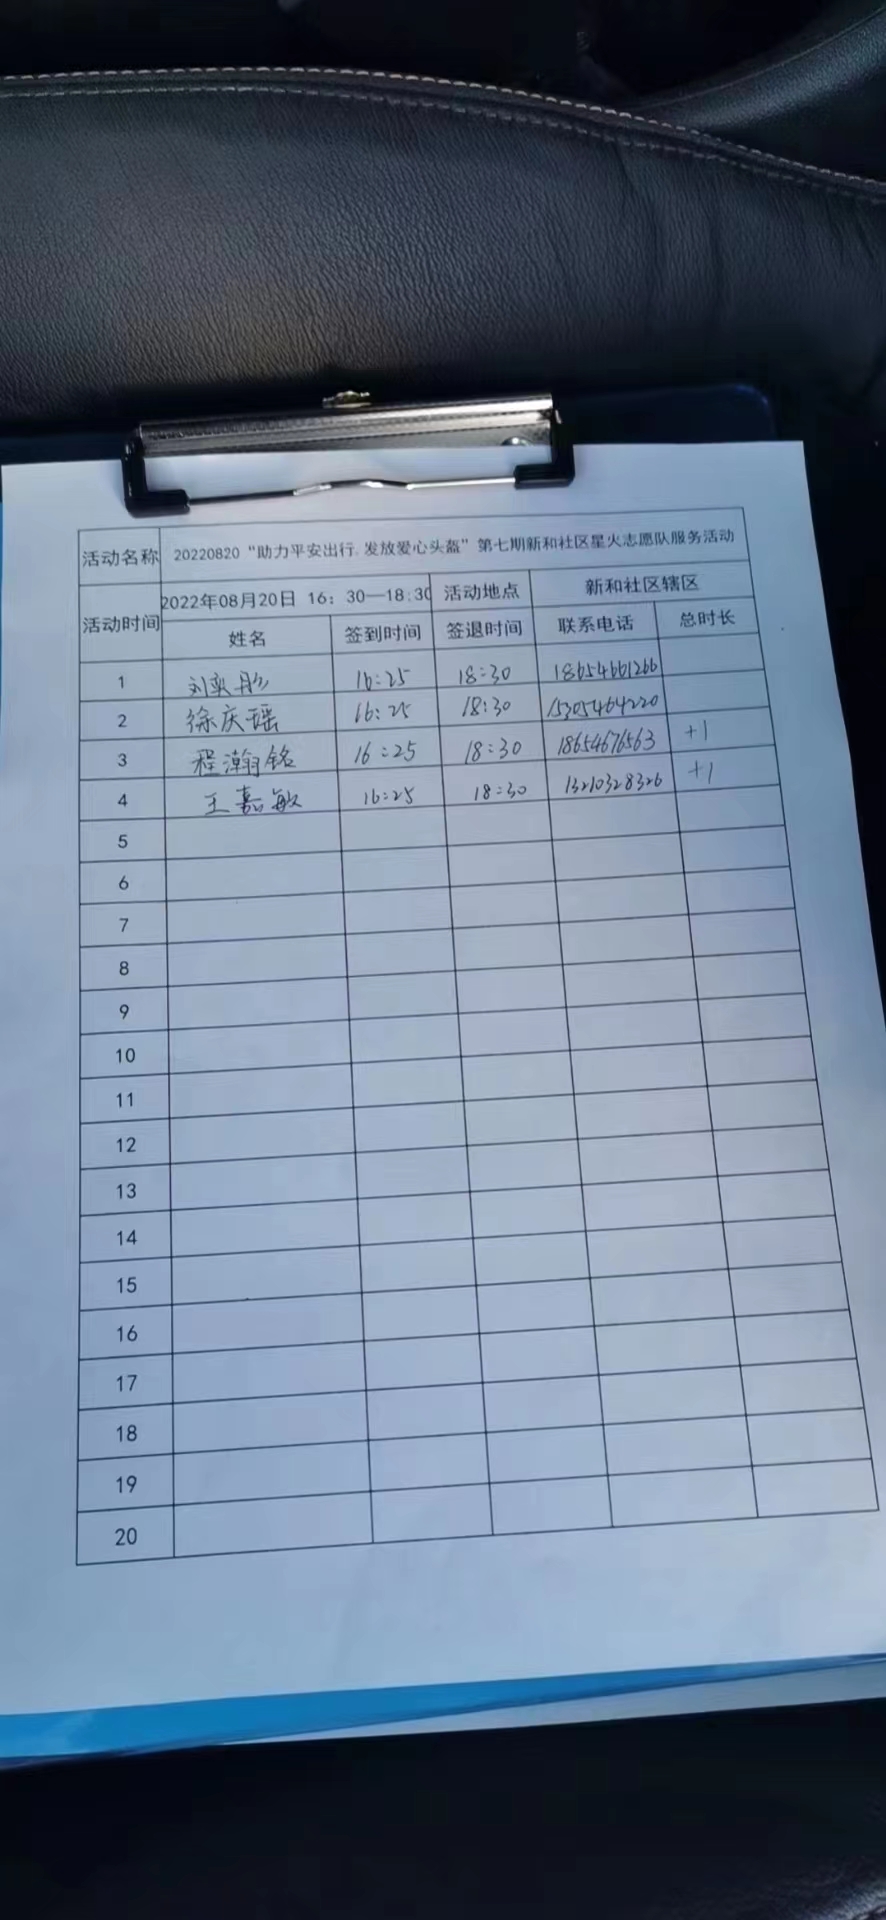 活动名称 20220820“助力平安出行,发放爱心头盔”第七期新和社区星火志愿队服务活动
活动时间 2022年08月20日 16：30—18:30 活动地点 新和社区辖区
姓名 签到时间 签退时间 联系电话 总时长
1 刘奕彤 16:25 18:30 18654661266
2 徐庆瑶 16:25 18:30 15305464220
3 程瀚铭 16:25 18:30 18654676563 +1
4 王嘉敏 16:25 18:30 13210328326 +1
5
6
7
8
9
10
11
12
13
14
15
16
17
18
19
20